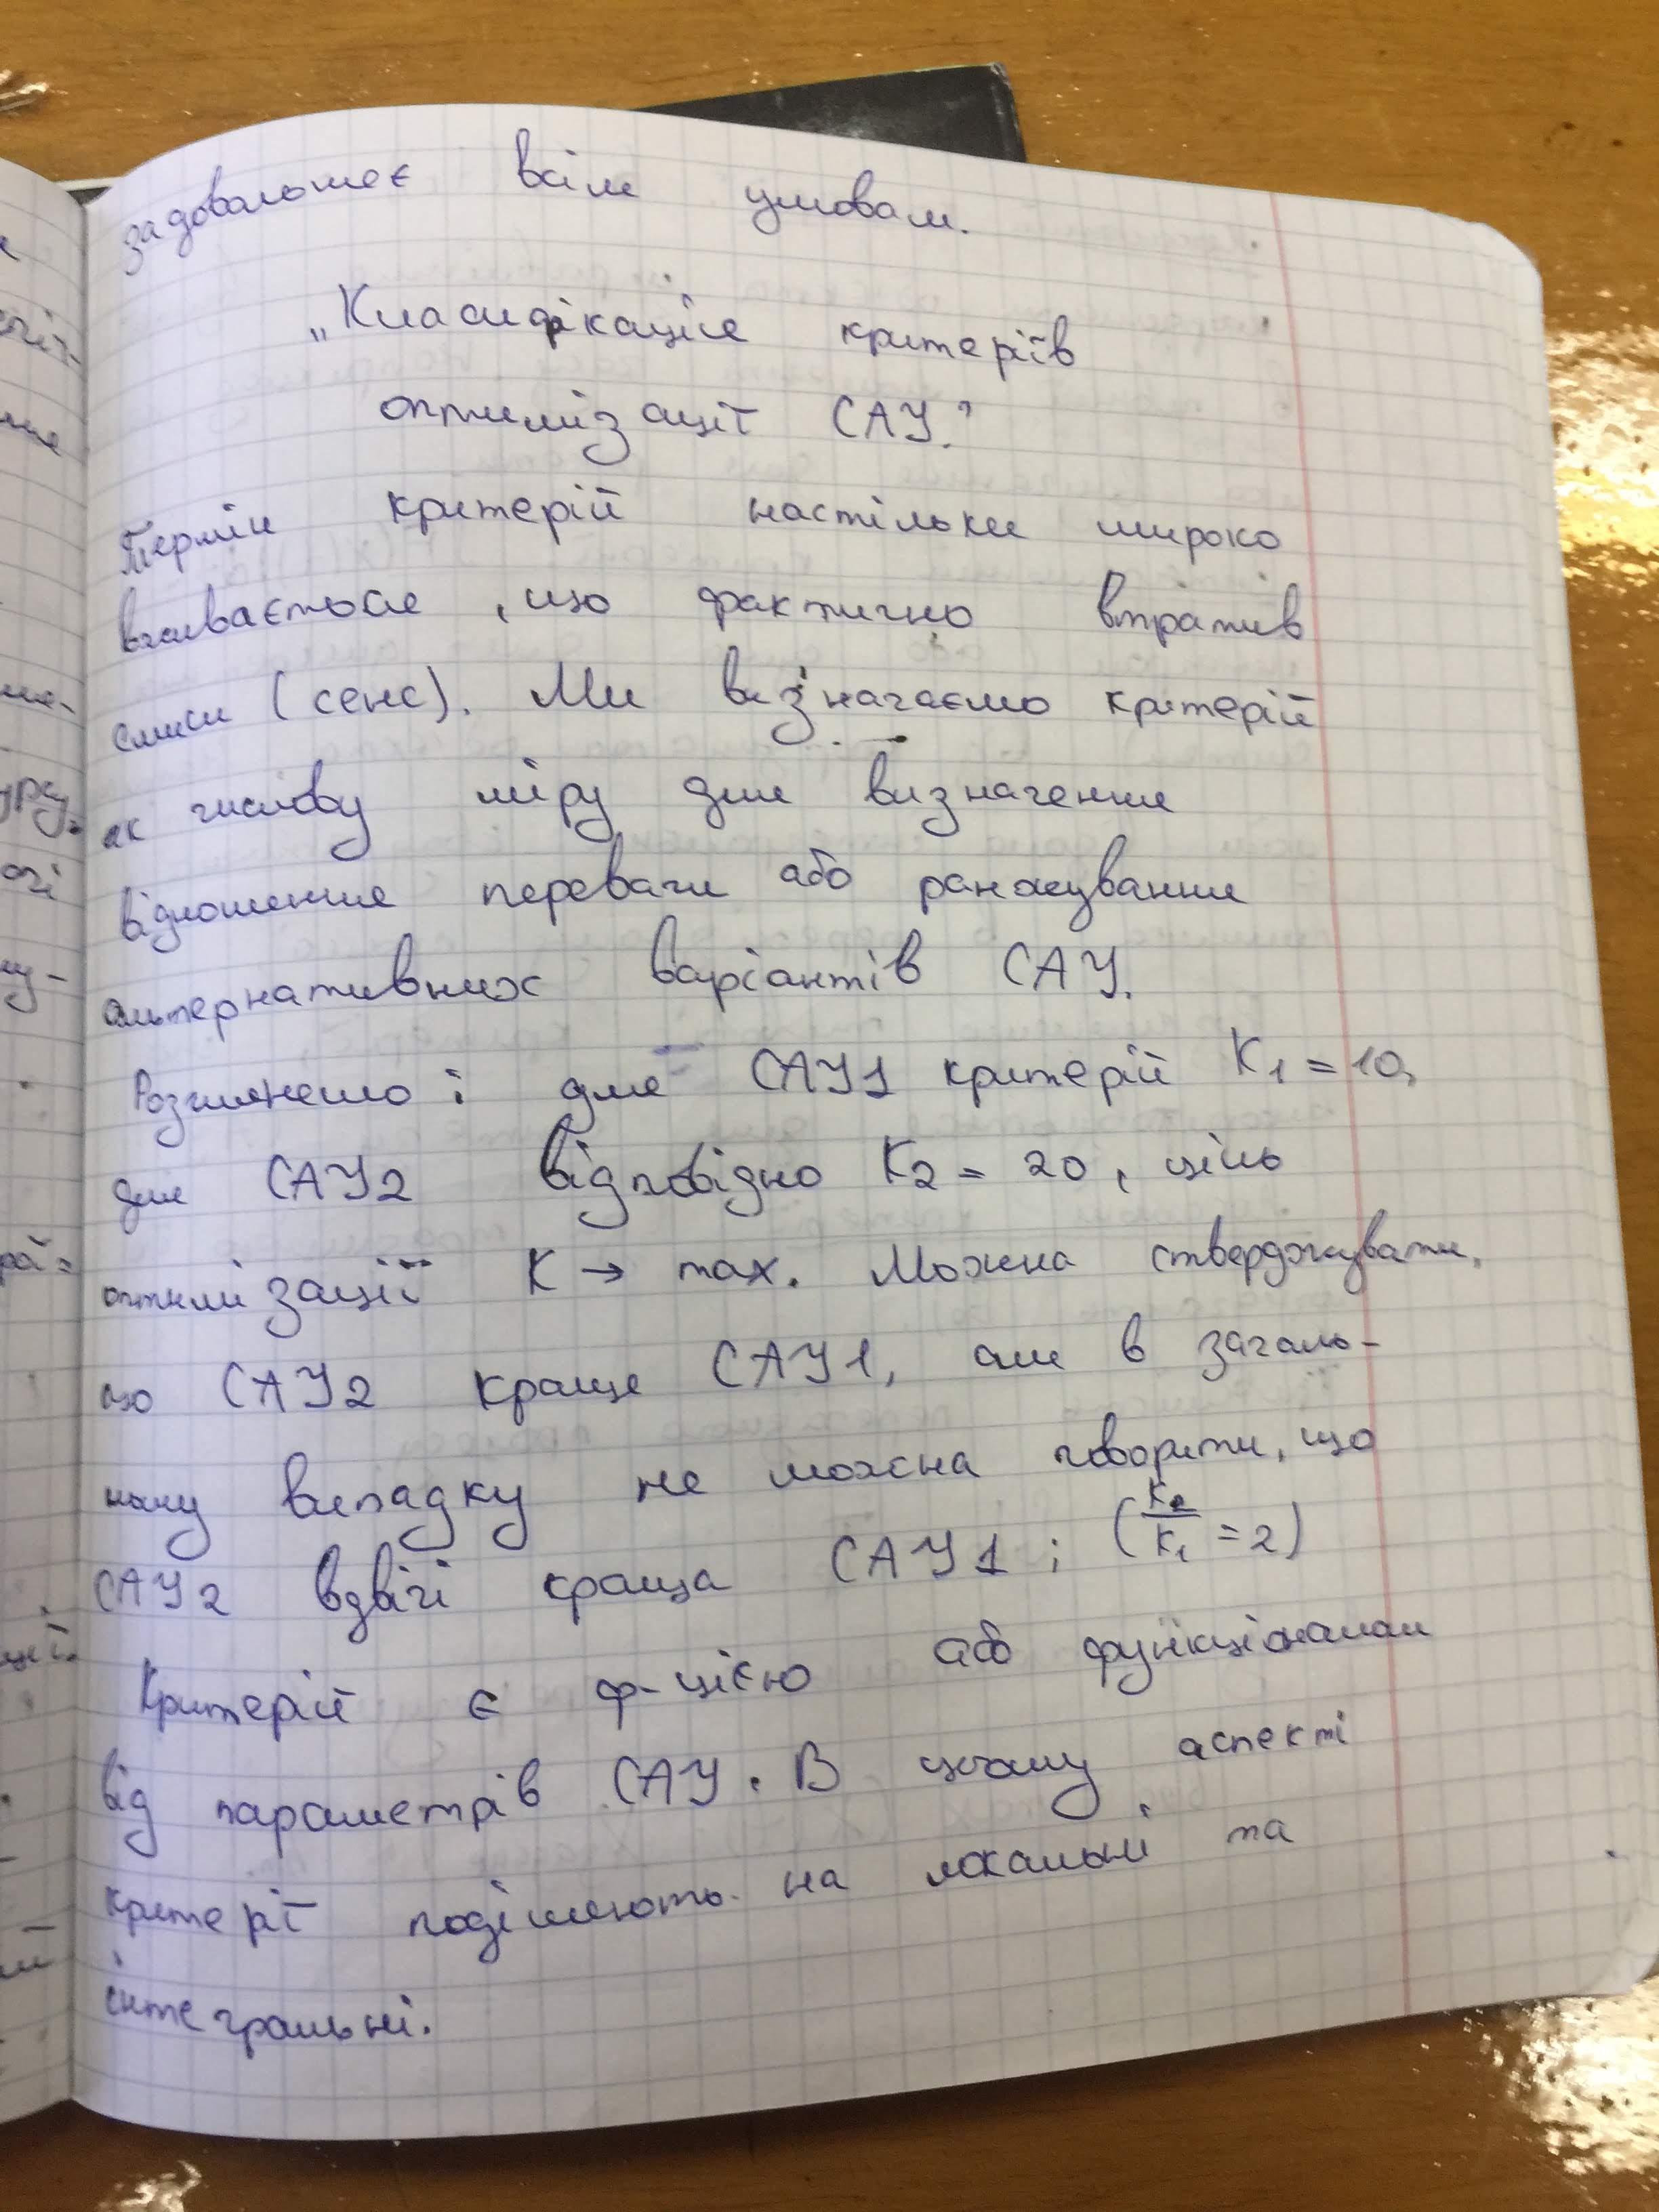 задовольняє всім умовам.
„Класифікація критеріїв
оптимізації САУ."
Термін критерій настільки широко
вживається, що фактично втратив
смисл (сенс). Ми визначаємо критерій
як числову міру для визначення
відношення переваги або ранжування
альтернативних варіантів САУ.
Розглянемо: для САУ1 критерій K1 = 10,
для САУ2 відповідно K2 = 20, ціль
оптимізації K → max. Можна стверджувати,
що САУ2 краще САУ1, але в загаль-
ному випадку не можна говорити, що
САУ2 вдвічі краща САУ1; (K2/K1 = 2)
Критерій є ф-цією або функціоналом
від параметрів САУ. В цьому аспекті
критерії поділяють на локальні та
інтегральні.